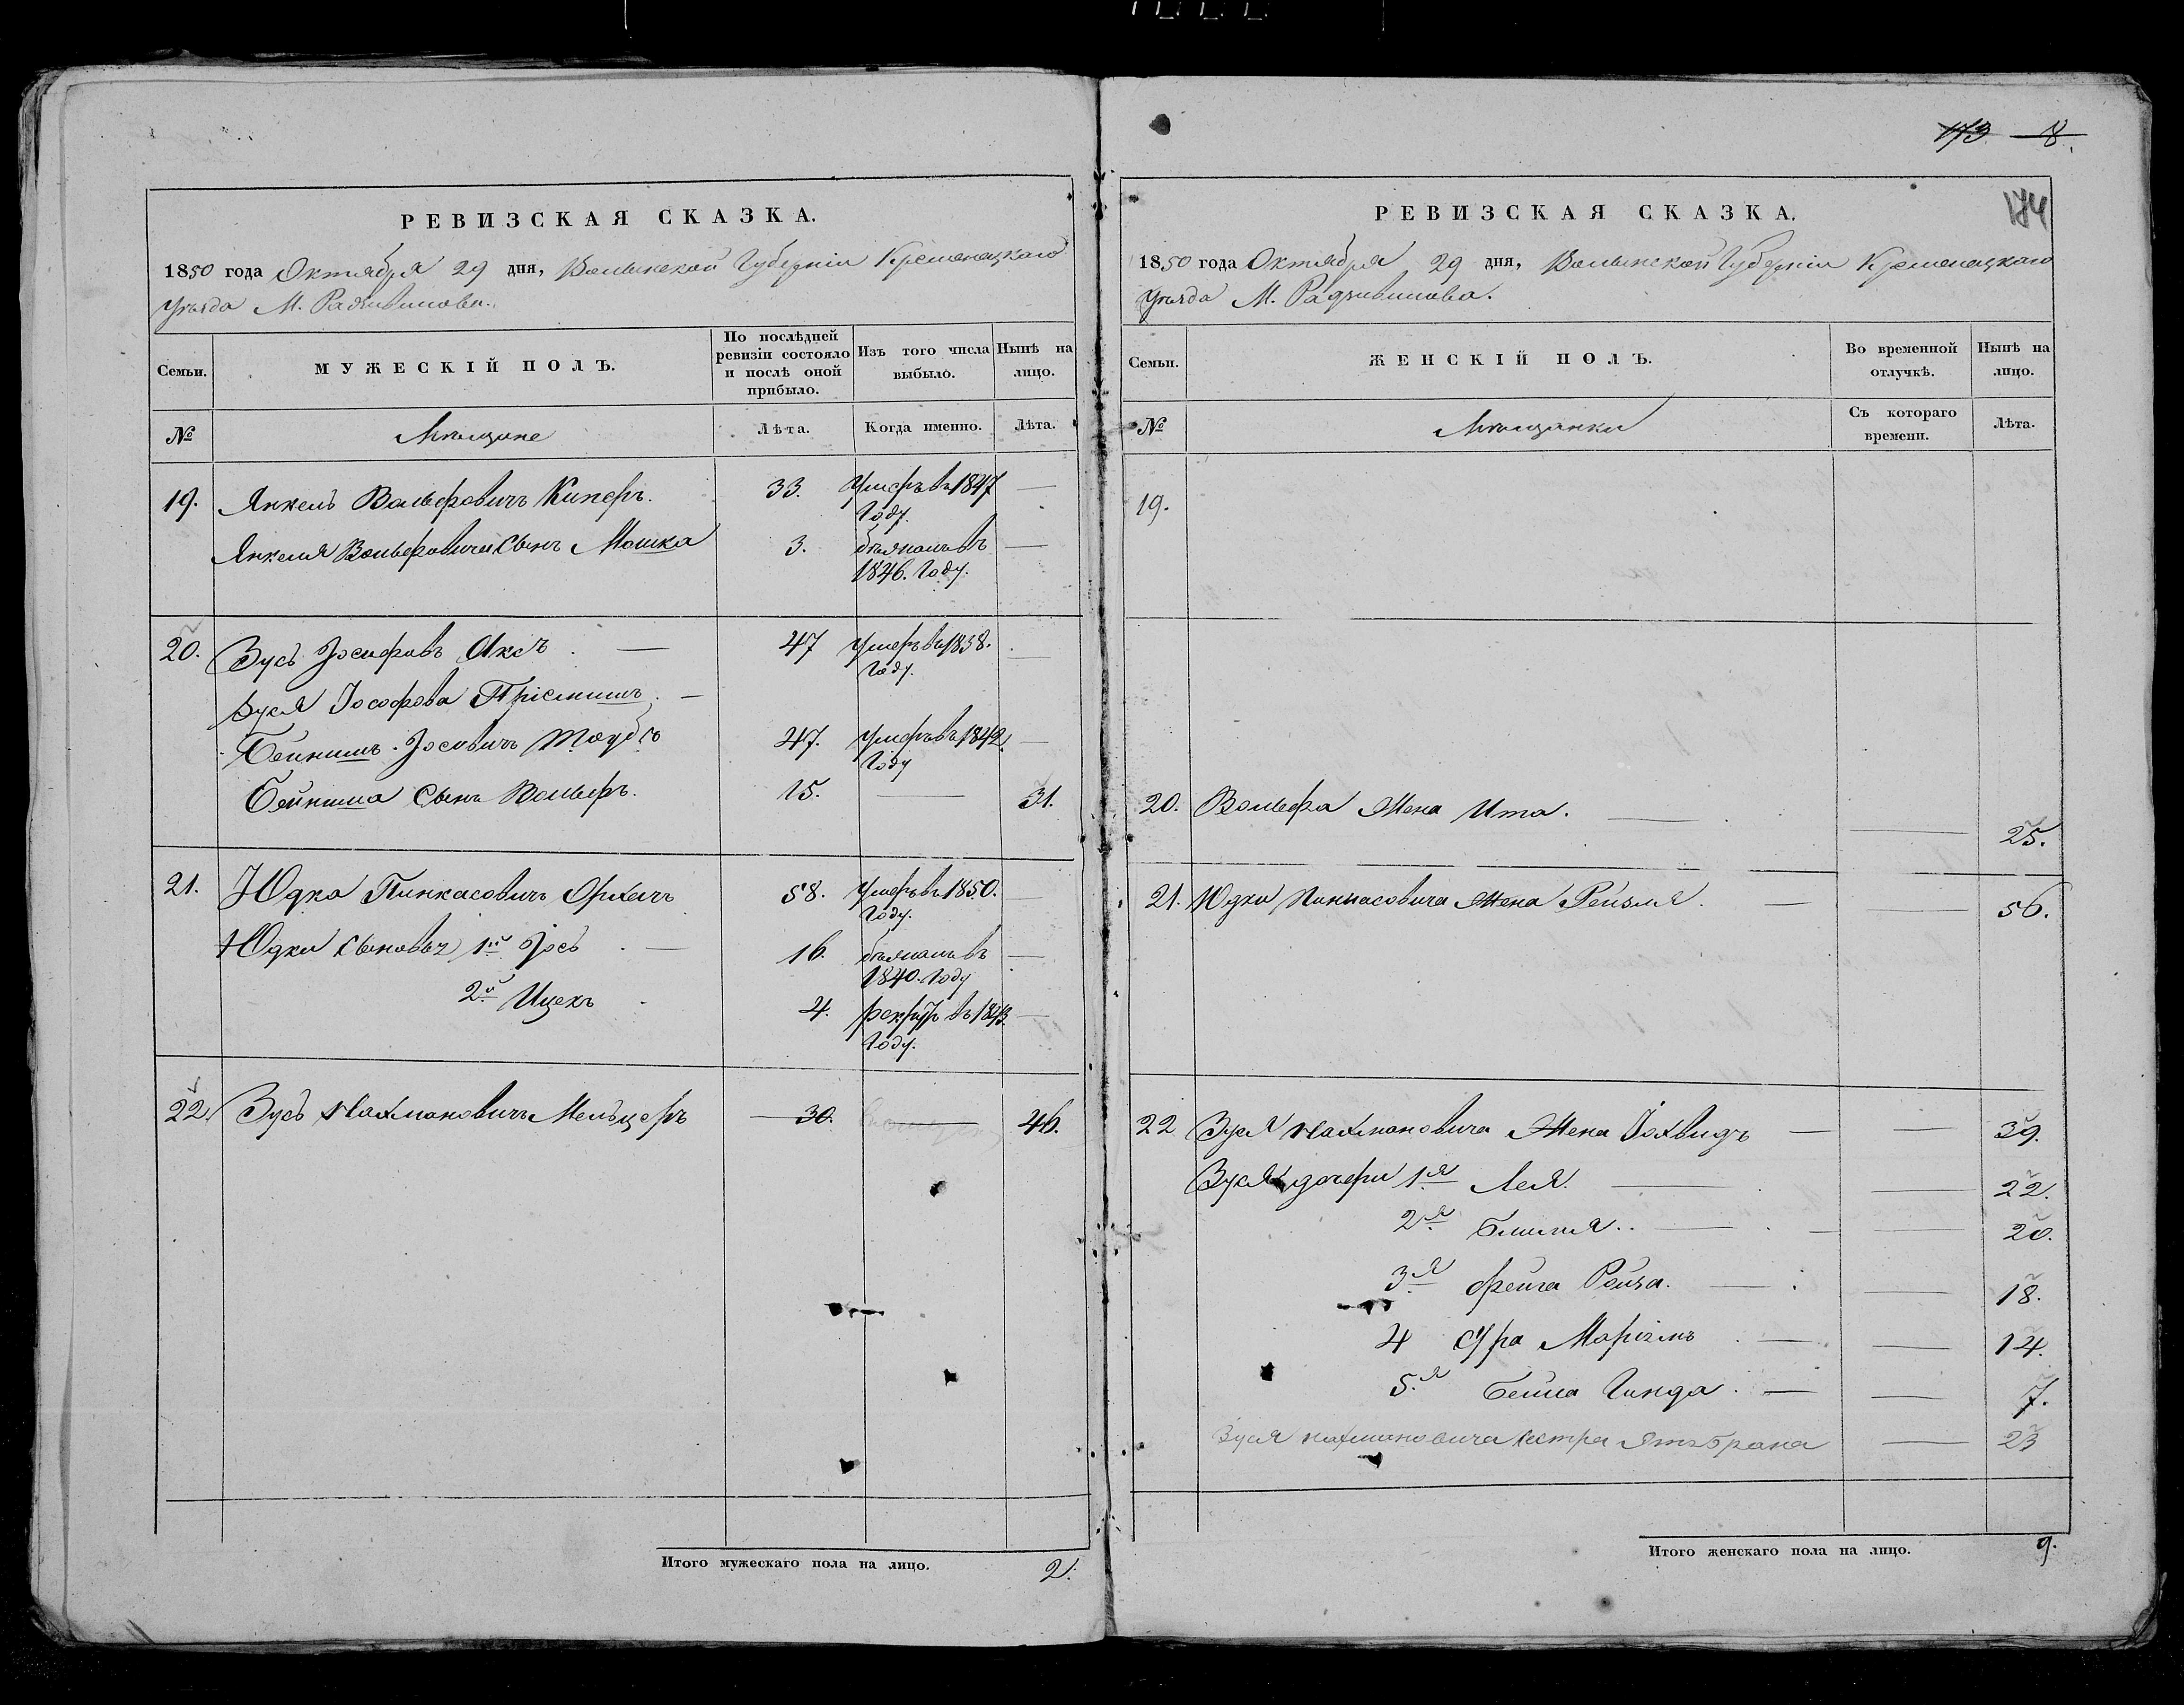 РЕВИЗСКАЯ СКАЗКА.
1850 года Октября 29 дня, Волынской Губерніи Кременецкаго
Уѣзда М. Радзивилова.
Семьи.
МУЖЕСКІЙ ПОЛЪ.
По послѣдней ревизіи состояло и послѣ оной прибыло.
Изъ того числа выбыло.
Нынѣ на лицо.
№
Мѣщане
Лѣта.
Когда именно.
Лѣта.
19. Янкель Вольфовичъ Киперъ. 33. Умеръ въ 1847 —
Году.
Янкеля Вольфовича Сынъ Мошка 3. бѣжалъ въ —
1846. Году.
20. Зусь Іосифовъ Аксъ. — 47 Умеръ въ 1838. —
Году.
Зуся Іософова Пріемышъ. —
Бейнишъ Іосовичъ 47. Умеръ въ 1842. —
Году
Бейниша Сынъ Вольфъ. 15. — 31.
21. Юдка Пинкасовичъ 58. Умеръ въ 1850. —
Году.
Юдки Сыновья 1й Іось — 16. бѣжалъ въ —
1840. Году
2й Ицекъ 4. рекрут въ 1843. —
Году.
22. Зусь Нахмановичъ Мельцеръ 30. — 46.
Итого мужескаго пола на лицо. 2.
173 8.
174
РЕВИЗСКАЯ СКАЗКА.
1850 года Октября 29 дня, Волынской Губерніи Кременецкаго
Уѣзда М. Радзивилова.
Семьи.
ЖЕНСКІЙ ПОЛЪ.
Во временной отлучкѣ.
Нынѣ на лицо.
№
Мѣщанки
Съ котораго времени.
Лѣта.
19.
20. Вольфа Жена Ита. — — 25.
21. Юдки Пинкасовича Жена Рейзля. — — 56.
22 Зуся Нахмановича Жена Іохвидъ — — 39.
Зуся дочери 1я Лея. — — 22.
2я — — 20.
3я Фейга Рейза. — — 18.
4 Сура Маріемъ — — 14.
5.я Бейла Гинда. — — 7.
Зуся Нахмановича сестра — 23
Итого женскаго пола на лицо. 9.